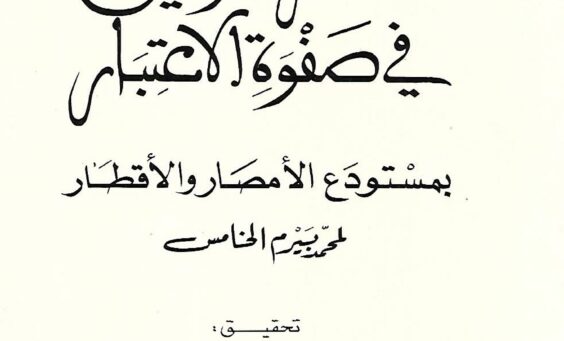 في صَفْوَةِ الاعْتِبَار
بمسْتودَع الأمصَار والأقطَار
لمحمّد بَيْرم الخامس
تحقيق :